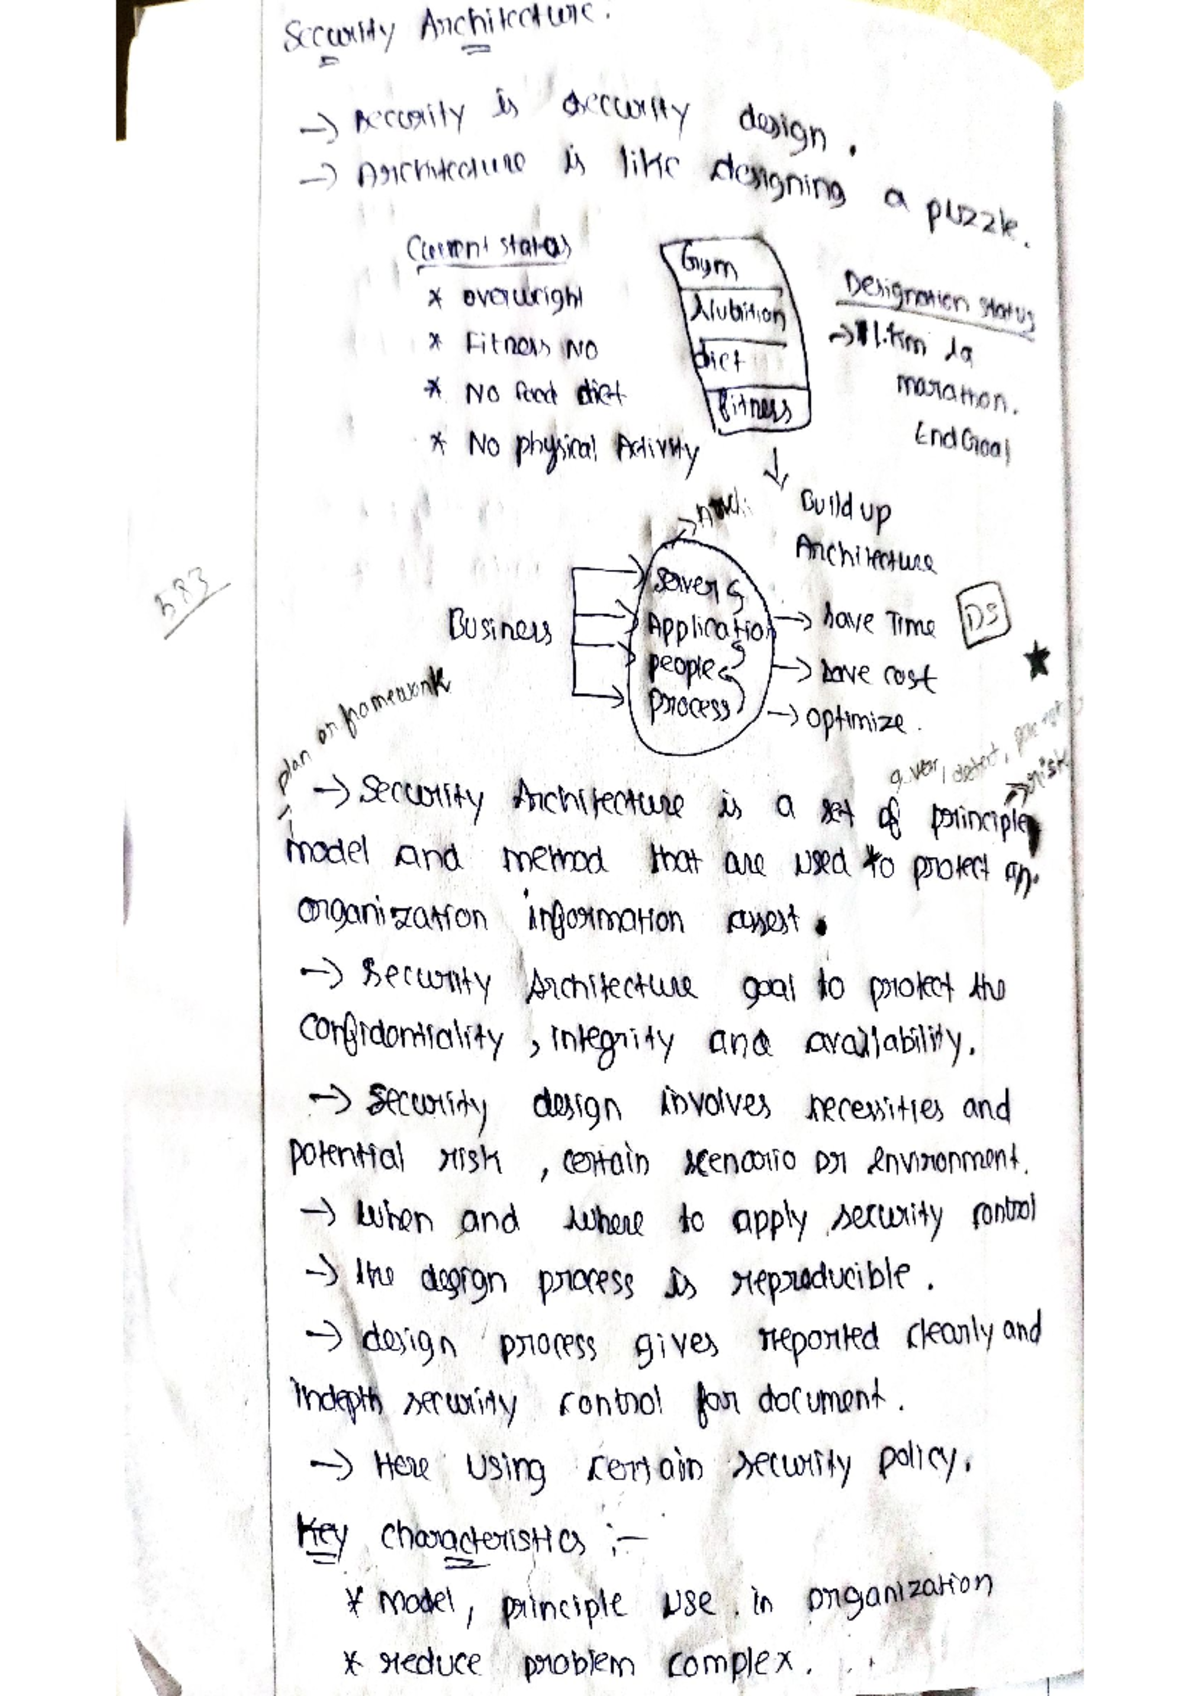 Security Architecture.
→ security is security design.
→ Architecture is like designing a puzzle.
Current status
* overwright
* Fitness No
* No food diet
* No physical Activity
Gym
Nubition
diet
fitness
Designation status
→ 11.km is
marathon.
End Goal
Build up
Architecture
583
Business
Servers
Application
people
process
→ save Time
→ save cost
→ optimize.
DS
plan or framework
detect,
→ risk
→ Security Architecture is a set of principle
model and method that are used to protect an.
organization information assest.
→ Security Architecture goal to protect the
confidentiality, integrity and availability.
→ security design involves necessities and
potential risk, certain scenario or environment.
→ when and where to apply security control
→ the design process is reproducible.
→ design process gives reported clearly and
indepth security control for document.
→ Here using certain security policy.
Key characteristics :-
* model, principle use in organization
* reduce problem complex.